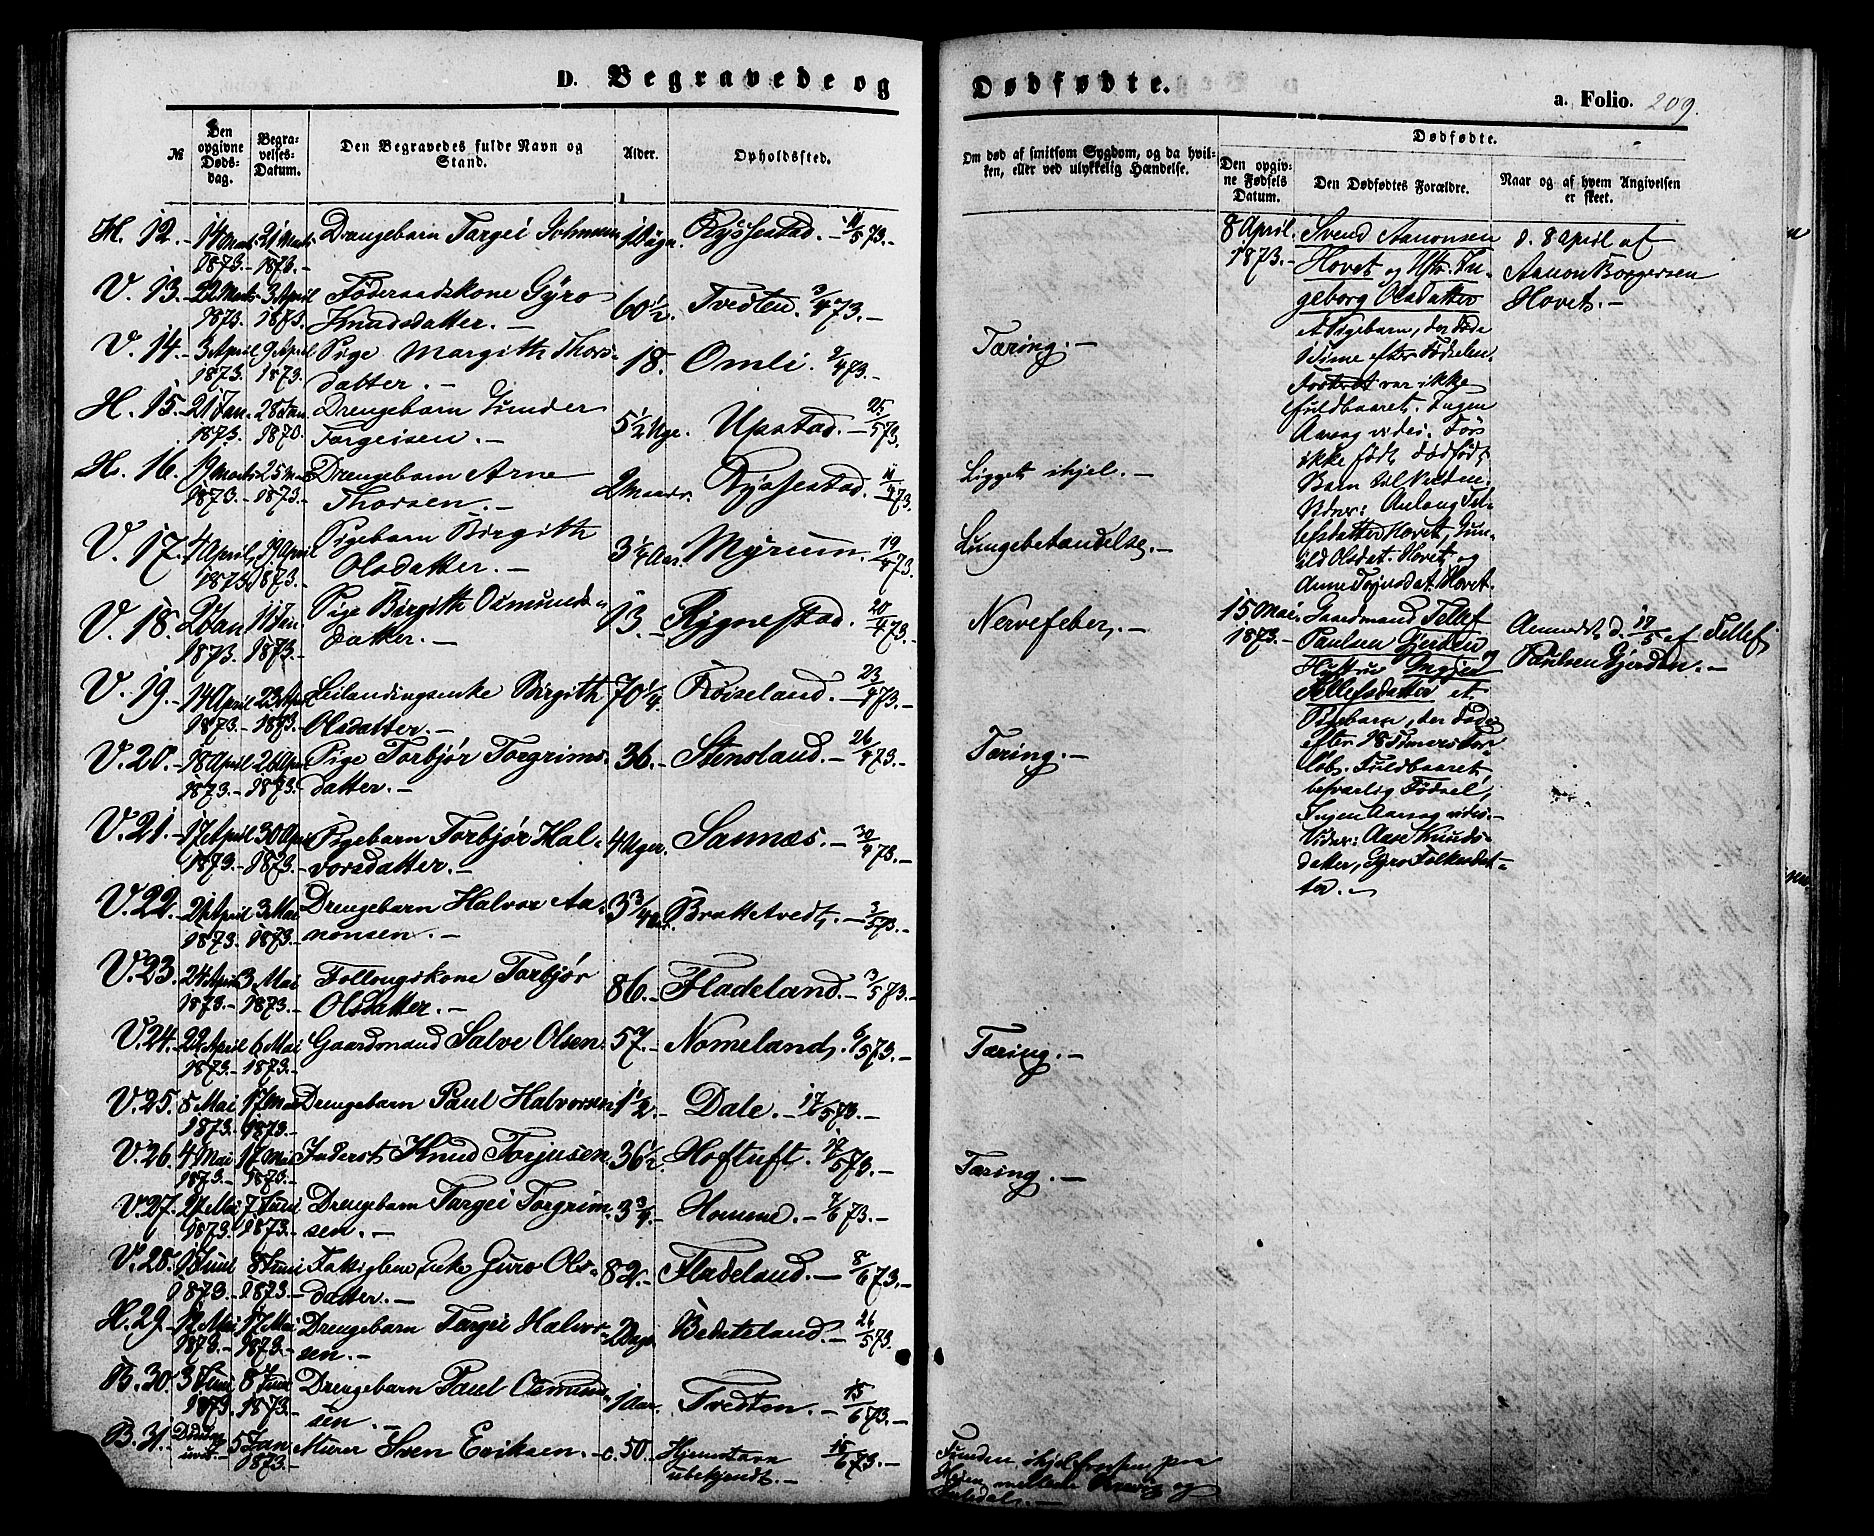 D. Begravede og Dødfødte.
a. Folio. 209.
№
Den opgivne Døds-dag.
Begra-velses-Datum.
Den Begravedes fulde Navn og Stand.
Alder.
Opholdssted.
Om død af smitsom Sygdom, og da hvil-
ken, eller ved ulykkelig Hændelse.
Dødfødte.
Den opgiv-ne Fødsels Datum.
Den Dødfødtes Forældre.
Naar og af hvem Angivelsen er skeet.
H. 12. 14 Marts 21 Marts Drengebarn Targei 1 Døgn. Rysstad. 11/5 73.
1873. 1873.
V. 13. 22 Marts 3 April Føderaadskone Gyro 60 1/2. Tvedten. 3/4 73.
1873. 1873. Knudsdatter.
V. 14. 3 April 9 April Pige Margith Thors- 18. Omli. 9/4 73. Tæring.
1873. 1873. datter.
H. 15. 21 Jan. 28 Jan. Drengebarn Gunder 5 1/2 Uge. Upstad. 25/5 73.
1873. 1873. Torgeisen.
H. 16. 19 Marts 25 Marts Drengebarn Arne 2 Maan. Rysestad. 11/4 73. Ligget ihjel.
1873. 1873. Thorsen.
V. 17. 4 April 19 April Pigebarn Birgith 3 1/4 Aar. Myrum. 19/4 73. Lungebetændelse.
1873. 1873. Olsdatter.
V. 18. 2 Jan 11 Jan Pige Birgith Osmunds- 13. Rygnestad. 20/4 73. Nervefeber.
1873. 1873. datter.
V. 19. 14 April 23 April Leilændingsenke Birgith 70 1/4. Røiseland. 23/4 73.
1873. 1873. Olsdatter.
V. 20. 18 April 26 April Pige Torbjør Torgrims- 36. Stensland. 26/4 73. Tæring.
1873. 1873. datter.
V. 21. 17 April 30 April Pigebarn Torbjør Hal- 4 Uger. Sannæs. 30/4 73.
1873. 1873. vorsdatter.
V. 22. 21 April 3 Mai Drengebarn Halvor Aa- 3 3/4 Aar. Brottetvedt. 3/5 73.
1873. 1873. nonsen.
V. 23. 24 April 3 Mai Follougskone Torbjør 86. Fladeland. 3/5 73.
1873. 1873. Olsdatter.
V. 24. 22 April 6 Mai Gaardmand Salve Olsen 57. Nomeland. 6/5 73. Tæring.
1873. 1873.
V. 25. 8 Mai 17 Mai Drengebarn Paul Halvorsen 1 1/2. Dale. 17/5 73.
1873. 1873.
V. 26. 4 Mai 17 Mai Inderst Knud Torjusen 36 1/2. Hoftuft. 17/5 73. Tæring.
1873. 1873.
V. 27. 27 Mai 7 Juni Drengebarn Targei Torgrim- 3 3/4. Homme. 7/6 73.
1873. 1873. sen.
V. 28. 1 Juni 8 Juni Fattiglem Enke Guro Ols- 82. Fladeland. 8/6 73.
1873. 1873. datter.
H. 29. 12 Mai 17 Mai Drengebarn Targei Halvor- 26/5 73
1873. 1873. sen.
B. 30. 3 Juni 8 Juni Drengebarn Paul Osmund- 1 Aar. Tvedten. 15/6 73.
1873. 1873. sen.
B. 31. 5 Jan Murer Sven Eriksen. c. 50. Hjemstavn 15/6 73. Funden ihjelfrossen paa
1873. ubekjendt. Heien mellem og
8 April. Svend Aanonsen d. 8 April af
1873. Hovet og Hstr. In- Aanon Borgersen
geborg Olsdatter Hovet.
et Pigebarn, der døde
1 Time efter Fødselen.
Fosteret var ikke
fuldbaaret. Ingen
Aarsag vides. Før
ikke født dødfødt
Barn til Verden.
Vidner: Aslaug Tel-
lefsdatter Hovet, Gun-
ild Olsdat. Hovet og
Anne Hovet.
15 Mai Gaardmand Tellef Anmeldt d. 17/5 af Tellef
1873. Paulsen Gjerden og Paulsen Gjerden.
Hustrue
Tellefsdatter et
Pigebarn, der døde
efter 18 Timers For-
løb. Fuldbaaret,
besværlig Fødsel,
Ingen Aarsag vides.
Vidner: Aase Knuds-
datter, Gyro Folkesdat-
ter.